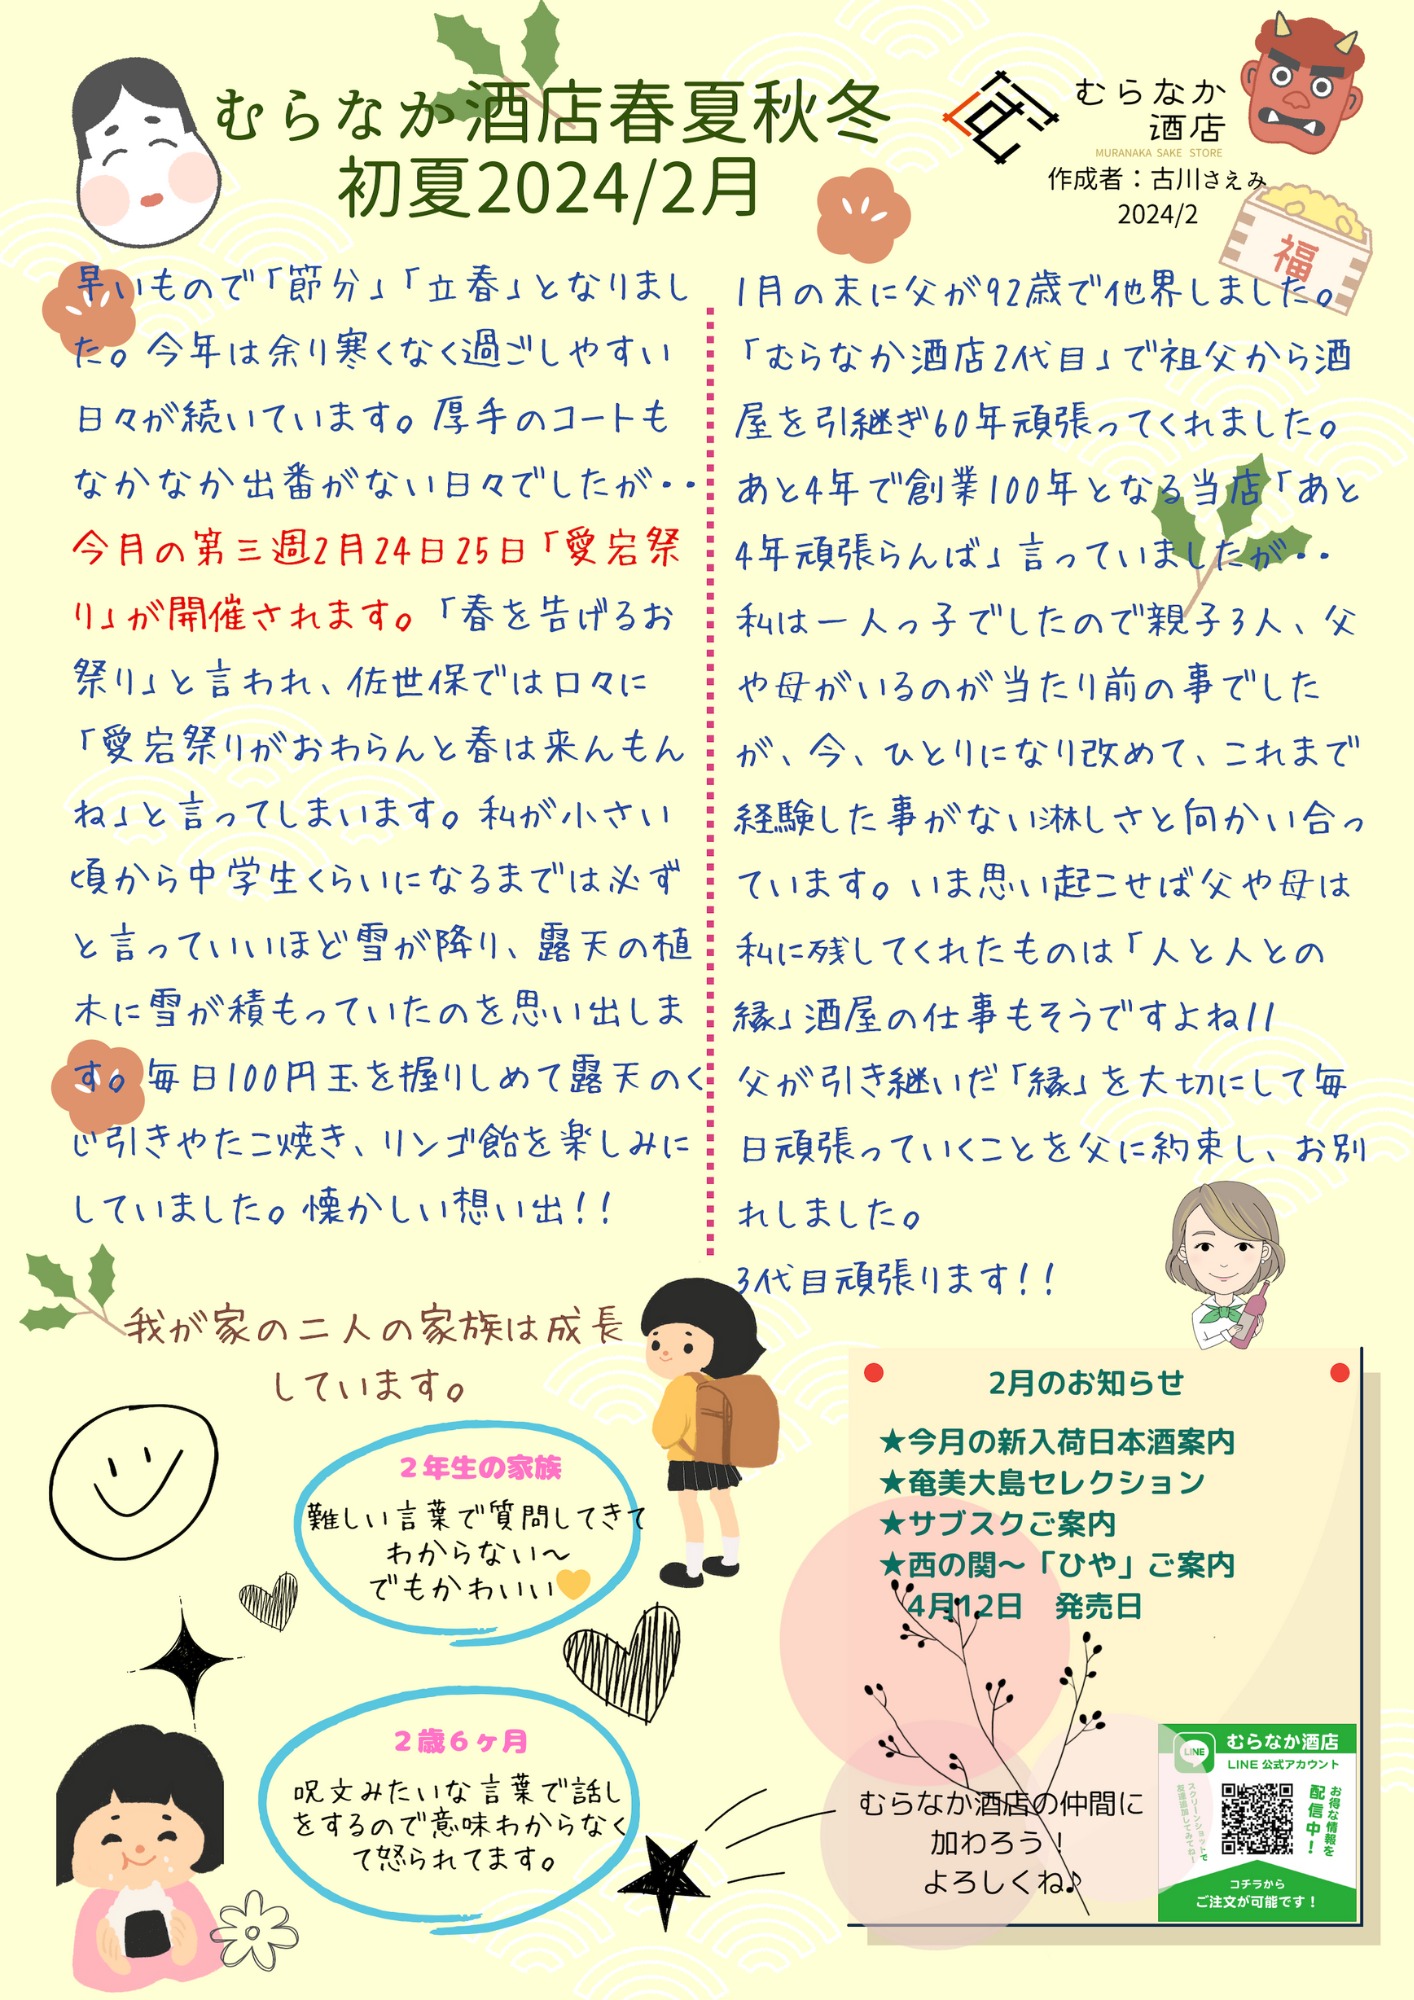 むらなか酒店春夏秋冬
初夏2024/2月
むらなか
酒店
MURANAKA SAKE STORE
作成者：古川さえみ
2024/2
福
早いもので「節分」「立春」となりまし
た。今年は余り寒くなく過ごしやすい
日々が続いています。厚手のコートも
なかなか出番がない日々でしたが・・
今月の第三週2月24日25日「愛宕祭
り」が開催されます。「春を告げるお
祭り」と言われ、佐世保では口々に
「愛宕祭りがおわらんと春は来んもん
ね」と言ってしまいます。私が小さい
頃から中学生くらいになるまでは必ず
と言っていいほど雪が降り、露天の植
木に雪が積もっていたのを思い出しま
す。毎日100円玉を握りしめて露天のく
じ引きやたこ焼き、リンゴ飴を楽しみに
していました。懐かしい想い出！！
1月の末に父が92歳で他界しました。
「むらなか酒店2代目」で祖父から酒
屋を引継ぎ60年頑張ってくれました。
あと4年で創業100年となる当店「あと
4年頑張らんば」言っていましたが・・
私は一人っ子でしたので親子3人、父
や母がいるのが当たり前の事でした
が、今、ひとりになり改めて、これまで
経験した事がない淋しさと向かい合っ
ています。いま思い起こせば父や母は
私に残してくれたものは「人と人との
縁」酒屋の仕事もそうですよね!!
父が引き継いだ「縁」を大切にして毎
日頑張っていくことを父に約束し、お別
れしました。
3代目頑張ります！！
我が家の二人の家族は成長
しています。
２年生の家族
難しい言葉で質問してきて
わからない～
でもかわいい💛
２歳６ヶ月
呪文みたいな言葉で話し
をするので意味わからなく
て怒られてます。
2月のお知らせ
★今月の新入荷日本酒案内
★奄美大島セレクション
★サブスクご案内
★西の関～「ひや」ご案内
4月12日　発売日
むらなか酒店の仲間に
加わろう！
よろしくね♪
LINE
むらなか酒店
LINE 公式アカウント
お得な情報を
配信中！
スクリーンショットで
友達追加してみてね！
コチラから
ご注文が可能です！